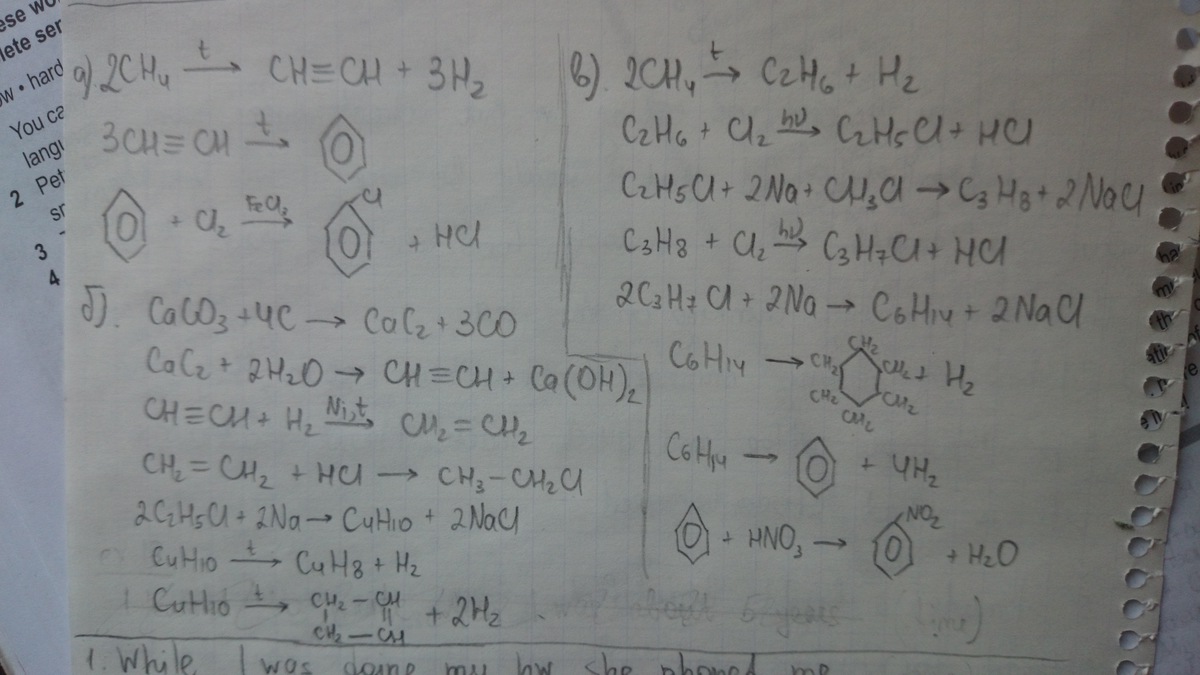 ese wo
lete ser
ow • hard
You ca
langu
2 Pet
sr
3
4
а) 2CH4 t→ CH≡CH + 3H2
3CH≡CH t→
+ Cl2 FeCl3→ Cl + HCl
б). CaCO3 + 4C → CaC2 + 3CO
CaC2 + 2H2O → CH≡CH + Ca(OH)2
CH≡CH + H2 Ni,t→ CH2=CH2
CH2=CH2 + HCl → CH3-CH2Cl
2C2H5Cl + 2Na → C4H10 + 2NaCl
C4H10 t→ C4H8 + H2
C4H10 t→ CH2-CH
CH2-CH + 2H2
в). 2CH4 t→ C2H6 + H2
C2H6 + Cl2 hν→ C2H5Cl + HCl
C2H5Cl + 2Na + CH3Cl → C3H8 + 2NaCl
C3H8 + Cl2 hν→ C3H7Cl + HCl
2C3H7Cl + 2Na → C6H14 + 2NaCl
C6H14 → CH2 CH2 CH2 CH2 CH2 CH2 + H2
C6H14 → + 4H2
+ HNO3 → NO2 + H2O
1. While I was doing my hw she phoned me